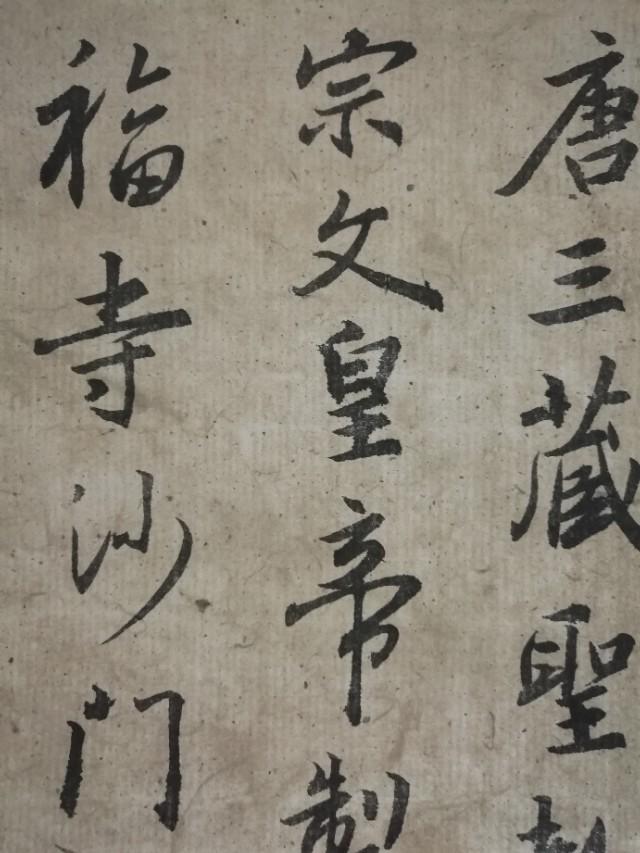 唐三藏聖
宗文皇帝製
福寺沙门